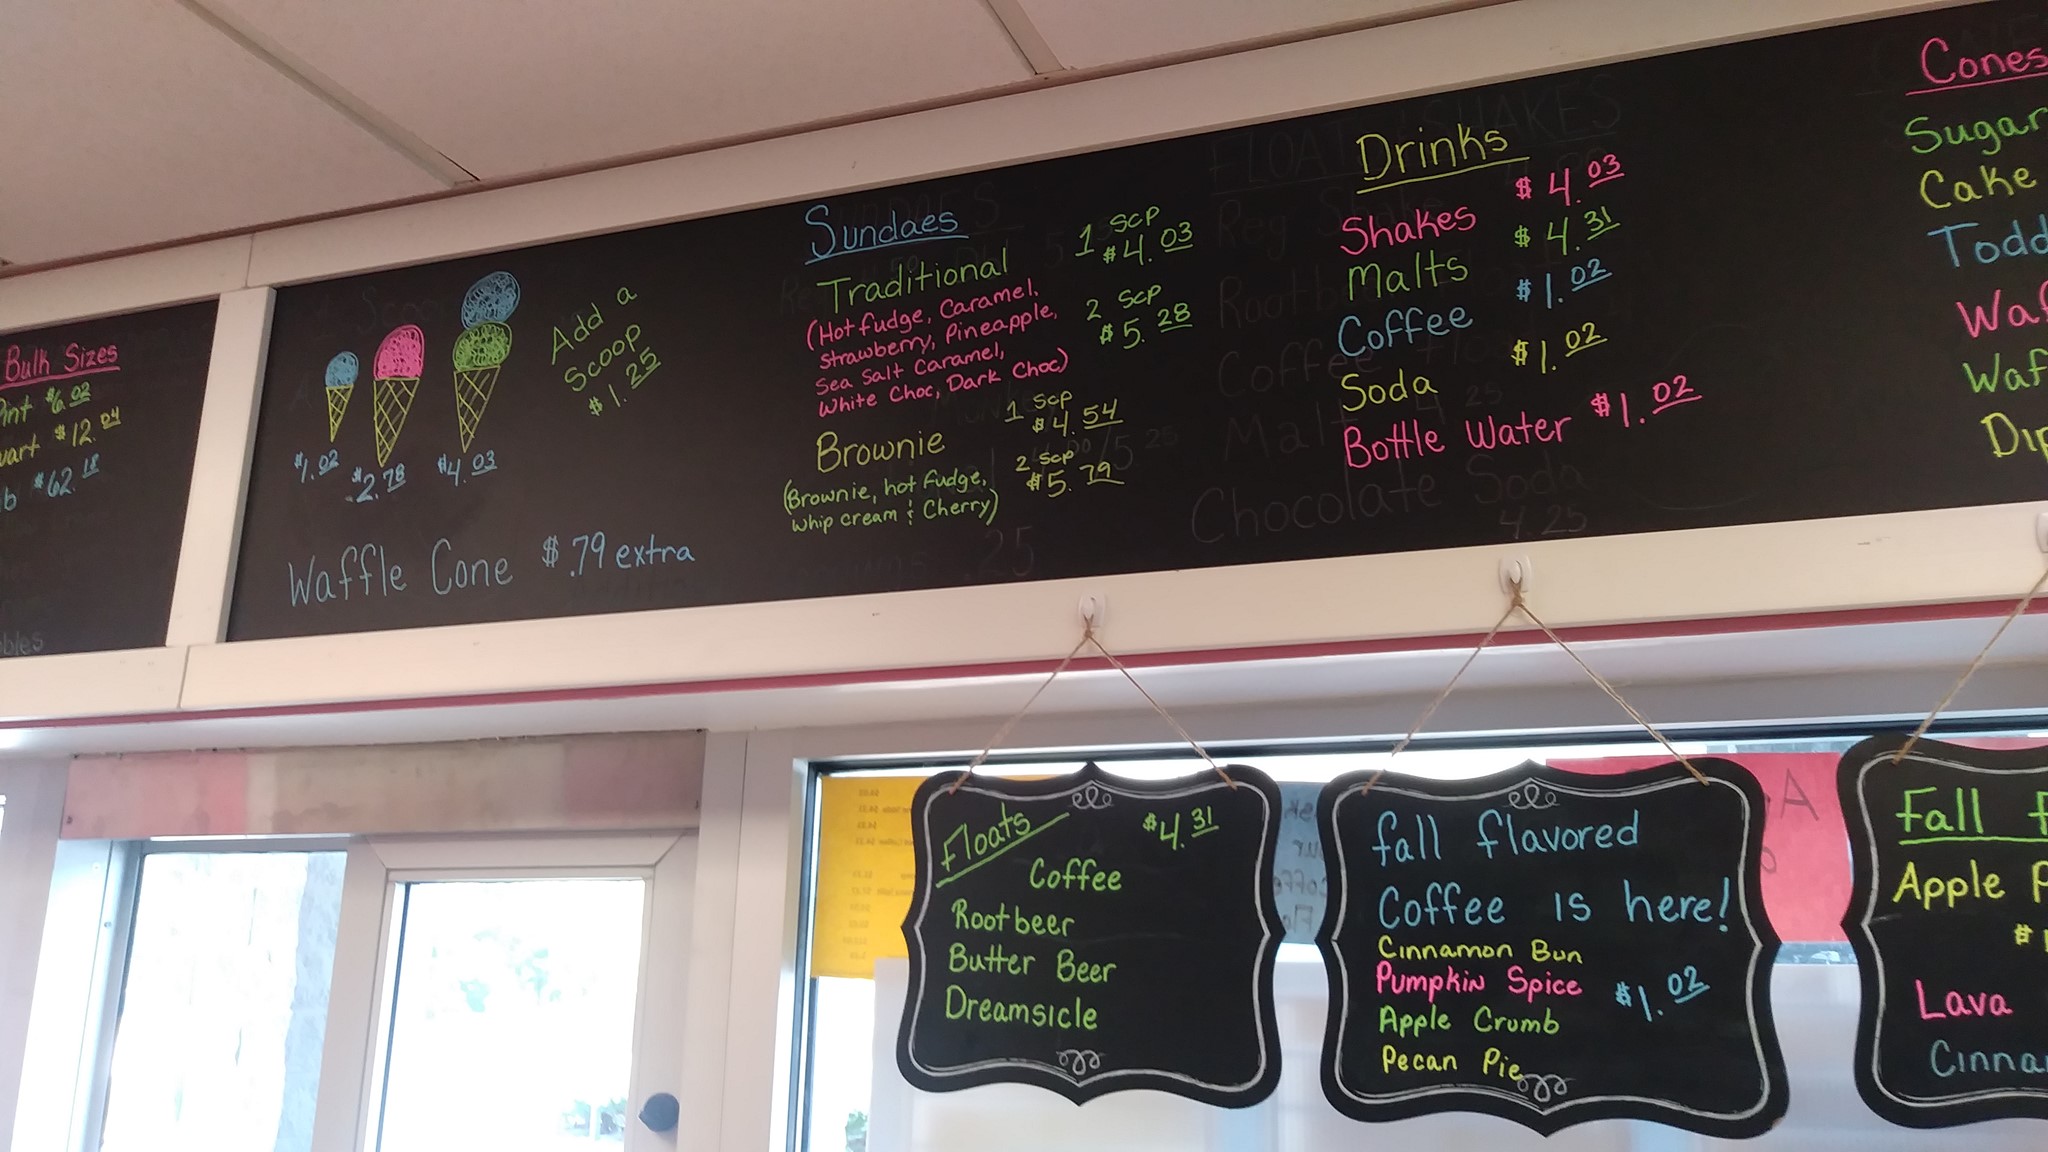 Bulk Sizes
Pint $6.02
$12.04
$62.18
$1.02
$2.78
$4.03
Add a
Scoop
$1.25
Waffle Cone $.79 extra
Sundaes
Traditional
1 Scp
$4.03
(Hot fudge, Caramel,
Strawberry, Pineapple,
Sea Salt Caramel,
White Choc, Dark Choc)
2 Scp
$5.28
Brownie
1 Scp
$4.54
(Brownie, hot fudge,
whip cream & Cherry)
2 Scp
$5.79
Drinks
Shakes $4.03
Malts $4.31
Coffee $1.02
Soda $1.02
Bottle Water $1.02
Chocolate Soda
4.25
Cones
Sugar
Cake
Floats $4.31
Coffee
Rootbeer
Butter Beer
Dreamsicle
fall flavored
Coffee is here!
Cinnamon Bun
Pumpkin Spice
$1.02
Apple Crumb
Pecan Pie
Fall
Apple
Lava